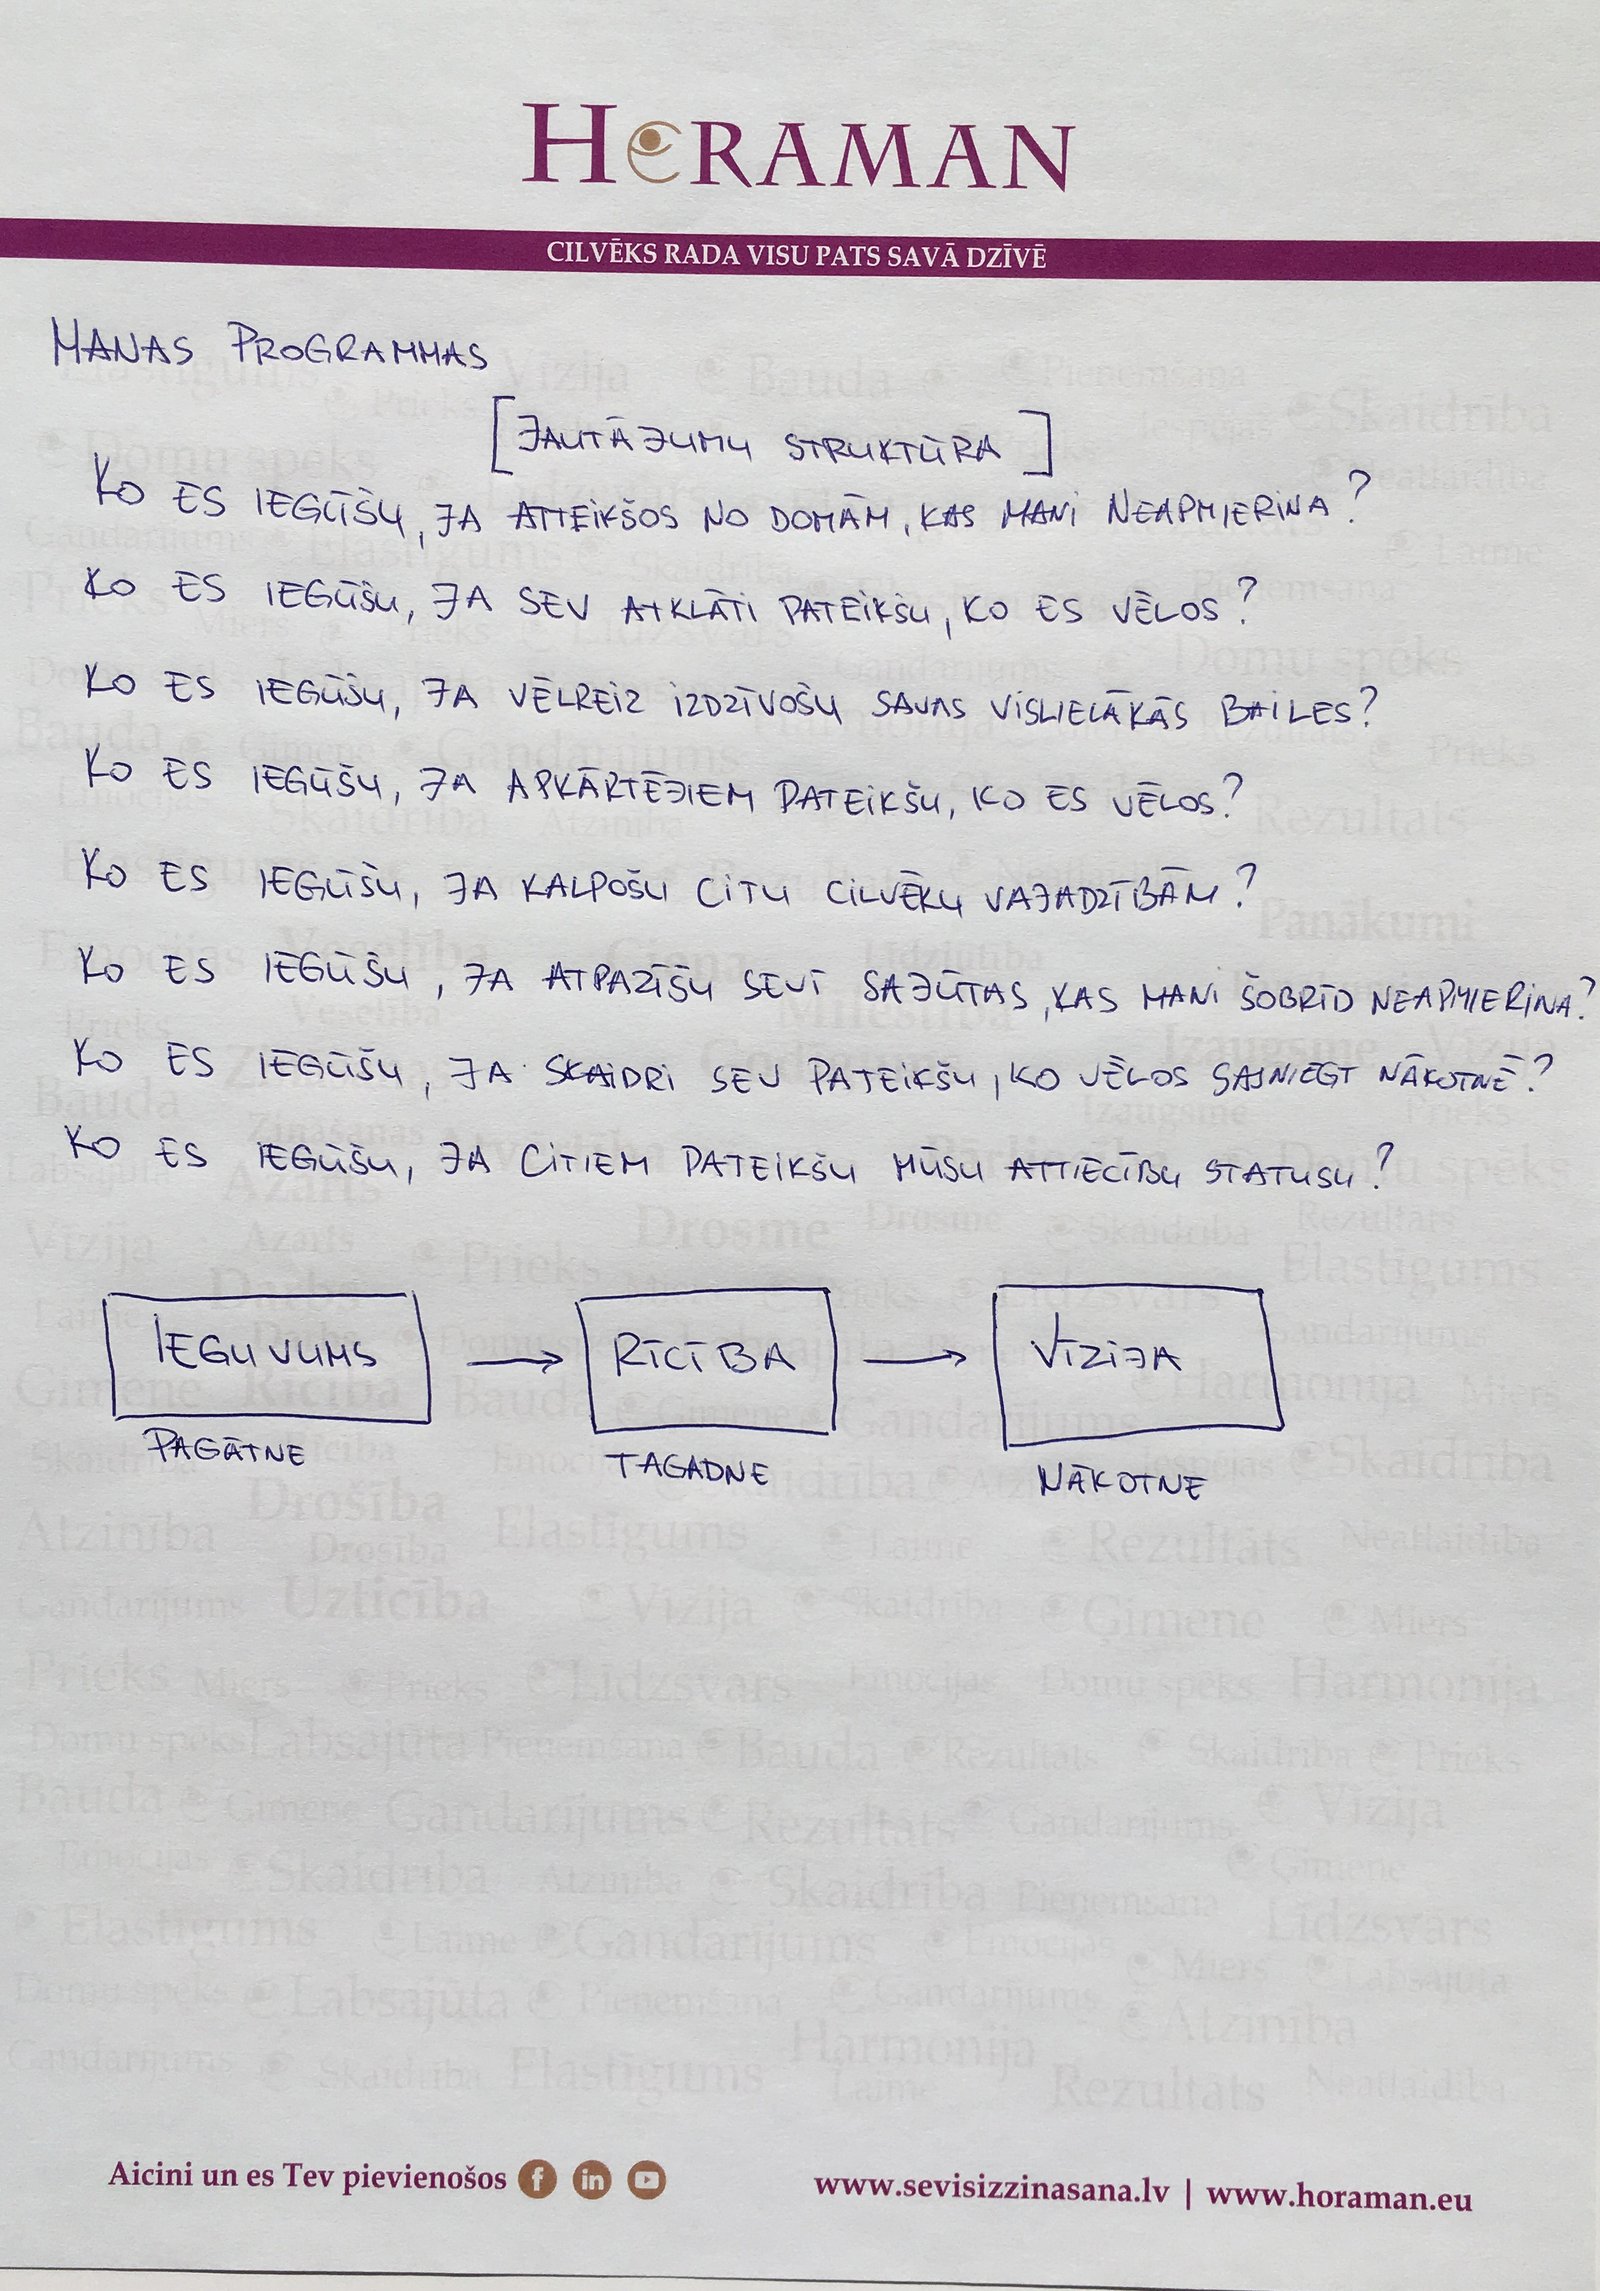 HORAMAN
CILVĒKS RADA VISU PATS SAVĀ DZĪVĒ
MANAS PROGRAMMAS
[JAUTĀJUMU STRUKTŪRA]
KO ES IEGŪŠU, JA ATTEIKŠOS NO DOMĀM, KAS MANI NEAPMIERINA?
KO ES IEGŪŠU, JA SEV ATKLĀTI PATEIKŠU, KO ES VĒLOS?
KO ES IEGŪŠU, JA VĒLREIZ IZDZĪVOŠU SAVAS VISLIELĀKĀS BAILES?
KO ES IEGŪŠU, JA APKĀRTĒJIEM PATEIKŠU, KO ES VĒLOS?
KO ES IEGŪŠU, JA KALPOŠU CITU CILVĒKU VAJADZĪBĀM?
KO ES IEGŪŠU, JA ATPAZĪŠU SEVĪ SAJŪTAS, KAS MANI ŠOBRĪD NEAPMIERINA?
KO ES IEGŪŠU, JA SKAIDRI SEV PATEIKŠU, KO VĒLOS SASNIEGT NĀKOTNĒ?
KO ES IEGŪŠU, JA CITIEM PATEIKŠU MŪSU ATTIECĪBU STATUSU?
IEGUVUMS → RĪCĪBA → VĪZIJA
PAGĀTNE TAGADNE NĀKOTNE
Aicini un es Tev pievienošos
www.sevisizzinasana.lv | www.horaman.eu